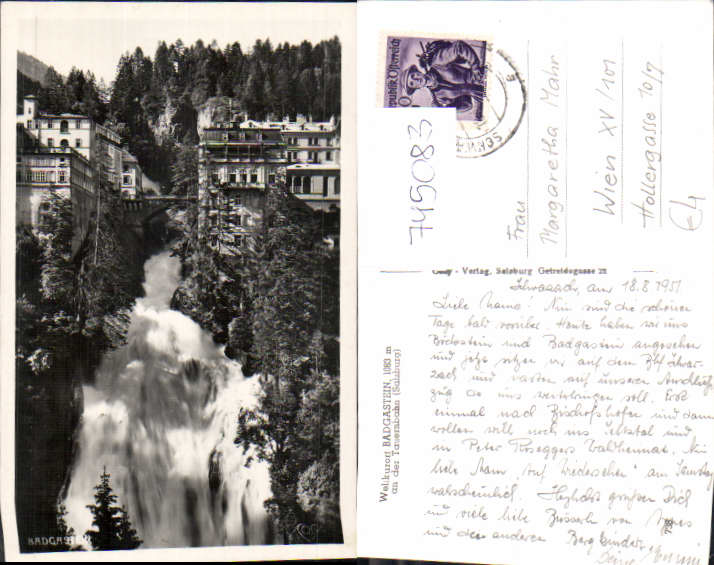 BADGASTEIN
Republik Österreich
745083
Frau
Margaretha Mahr
Wien XV/101
Hollergasse 10/7
€4
Verlag, Salzburg Getreidegasse 22
Weltkurort BADGASTEIN, 1083 m
an der Tauernbahn (Salzburg)
Schwarzach, am 18.8.1951
Liebe Mama! Nun sind die schönen
Tage bald vorüber. Heute haben wir uns
Böckstein und Badgastein angesehen
und jetzt sitzen wir auf dem Bhf Schwar-
zach und warten auf unseren Anschluß-
zug der uns weiterbringen soll. Erst
einmal nach Bischofshofen und dann
wollen wir noch ins und
in Peter Roseggers Waldheimat. Also
liebe Mama, "Auf Wiedersehen" am Samstag
wahrscheinlich. Herzlichst grüßen Dich
und viele liebe Busserl von
und den anderen Bergkindern
Deine